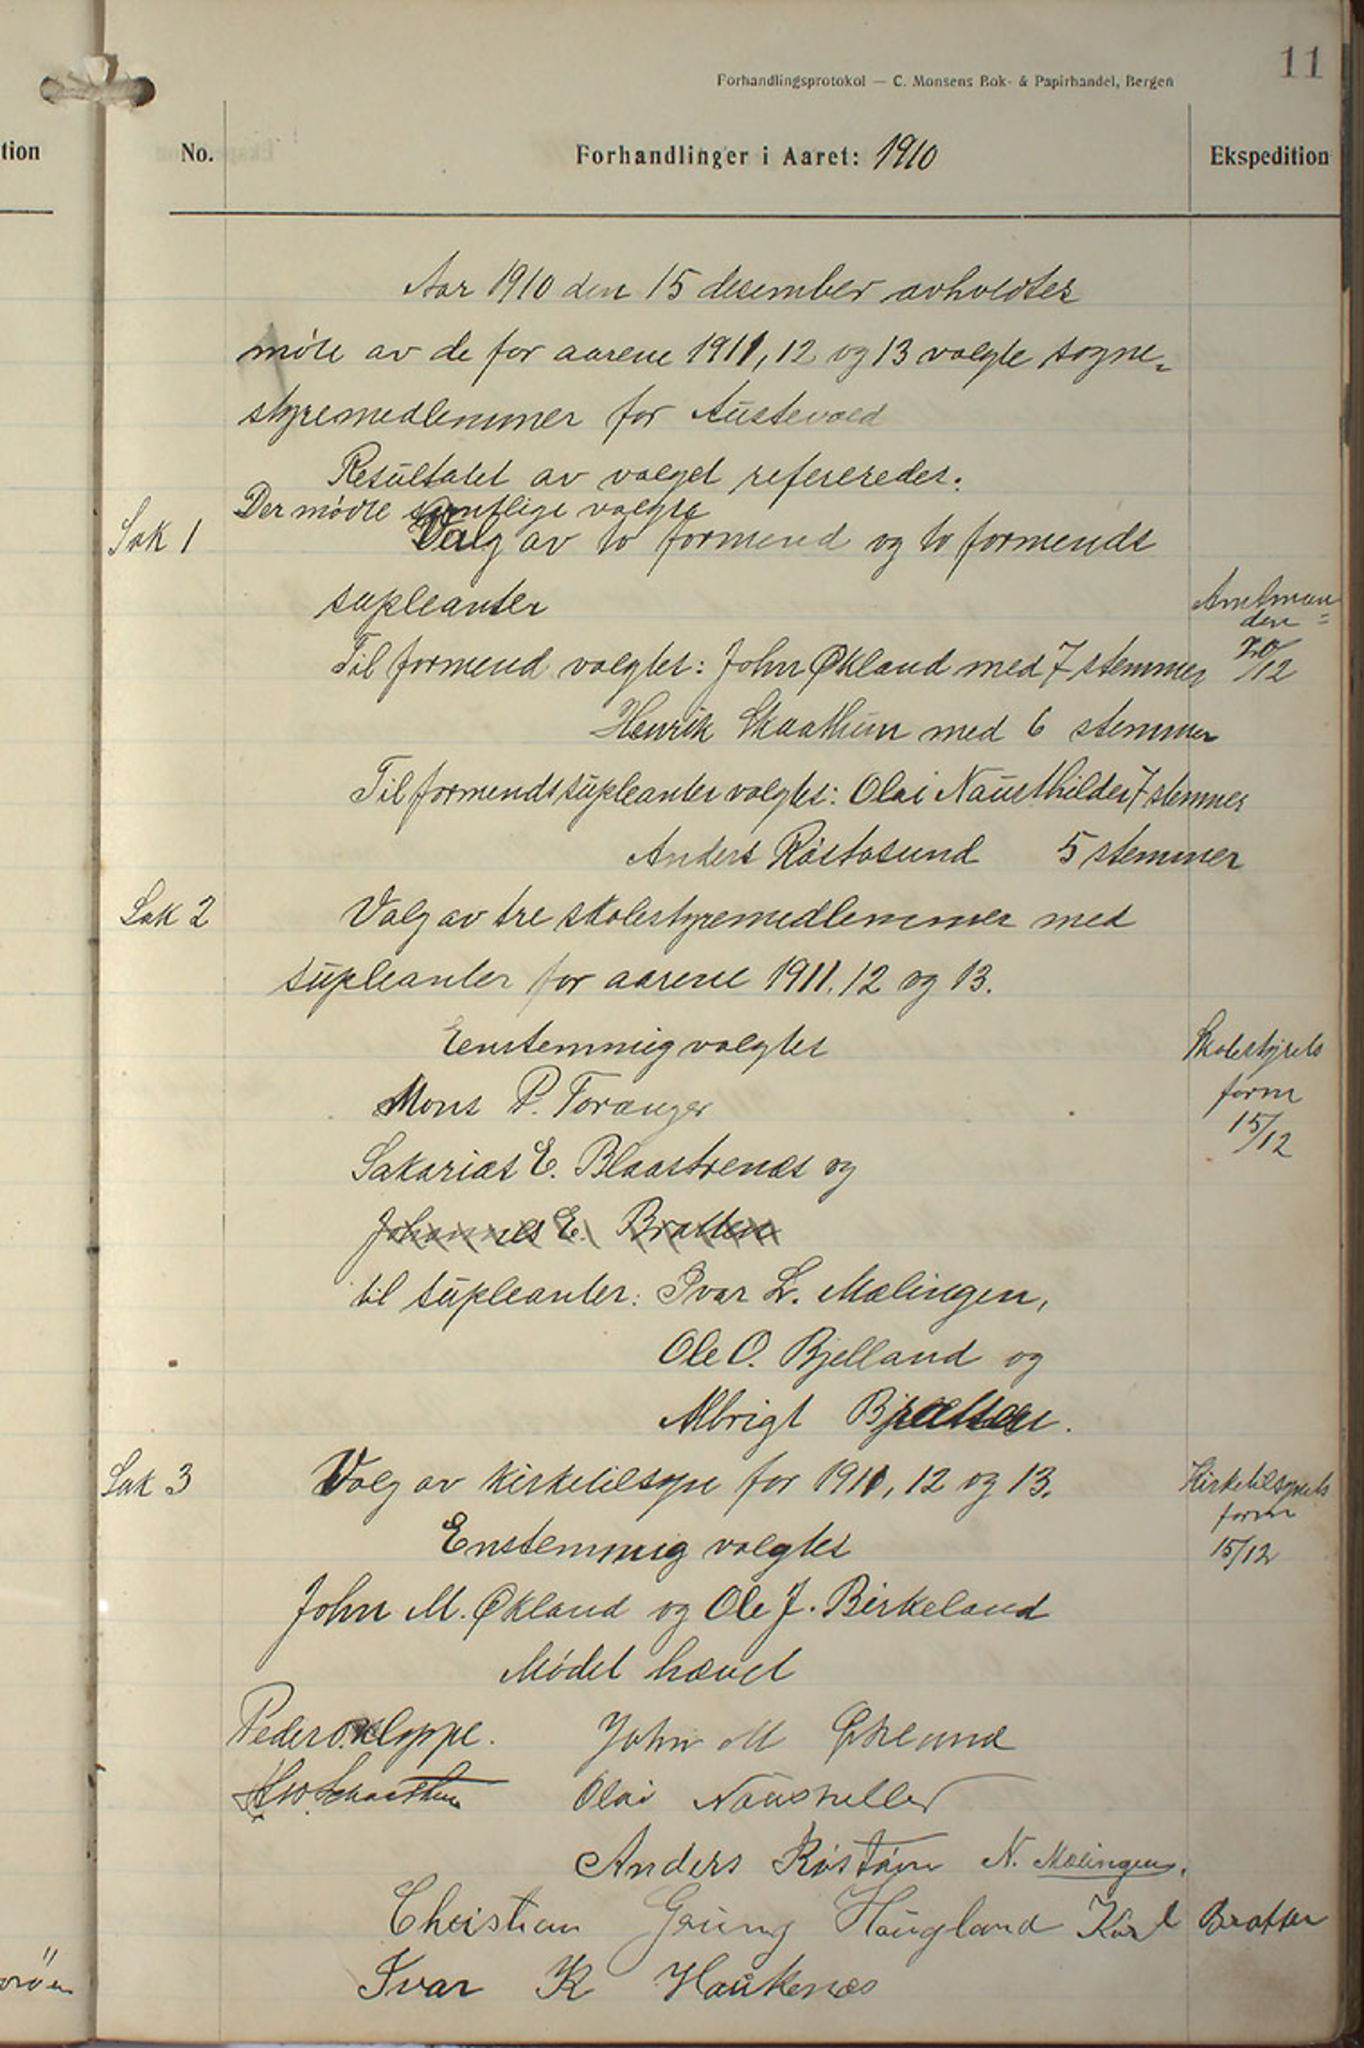 11
Forhandlingsprotokol — C. Monsens Bok- & Papirhandel, Bergen
tion
No.
Forhandlinger i Aaret: 1910
Ekspedition
Aar 1910 den 15 december avholdtes
møte av de for aarene 1911, 12 og 13 valgte sogne-
styremedlemmer for Austevold
Resultatet av valget refereredes.
Der mødte samtlige valgte
Sak 1
Valg av to formend og to formends
supleanter
Amtman
den
20/12
Til formend valgtes: John Økland med 7 stemmer
Henrik Skaathun med 6 stemmer
Til formendssupleanter valgtes: Olai Nausthilder 7 stemmer
Anders Røstøsund 5 stemmer
Sak 2
Valg av tre skolestyremedlemmer med
supleanter for aarene 1911. 12 og 13.
Eenstemmig valgtes
Skolestyrets
form
15/12
Mons P. Toranger
Sakarias E. Blaastrenæs og
Johannes E. Bratten
til supleanter: Ivar L. Mælingen,
Ole O. Bjelland og
Albrigt
Sak 3
Valg av kirketilsyn for 1911, 12 og 13.
Kirketilsynets
form
15/12
Enstemmig valgtes
John M. Økland og Ole J. Birkeland
Mødet hævet
Peder O. Kloppe.
John M Økland
Olai Naustheller
Anders Røstøen N. Mælingen.
Christian Grung Haugland Karl Bratten
Ivar K Haukenæs